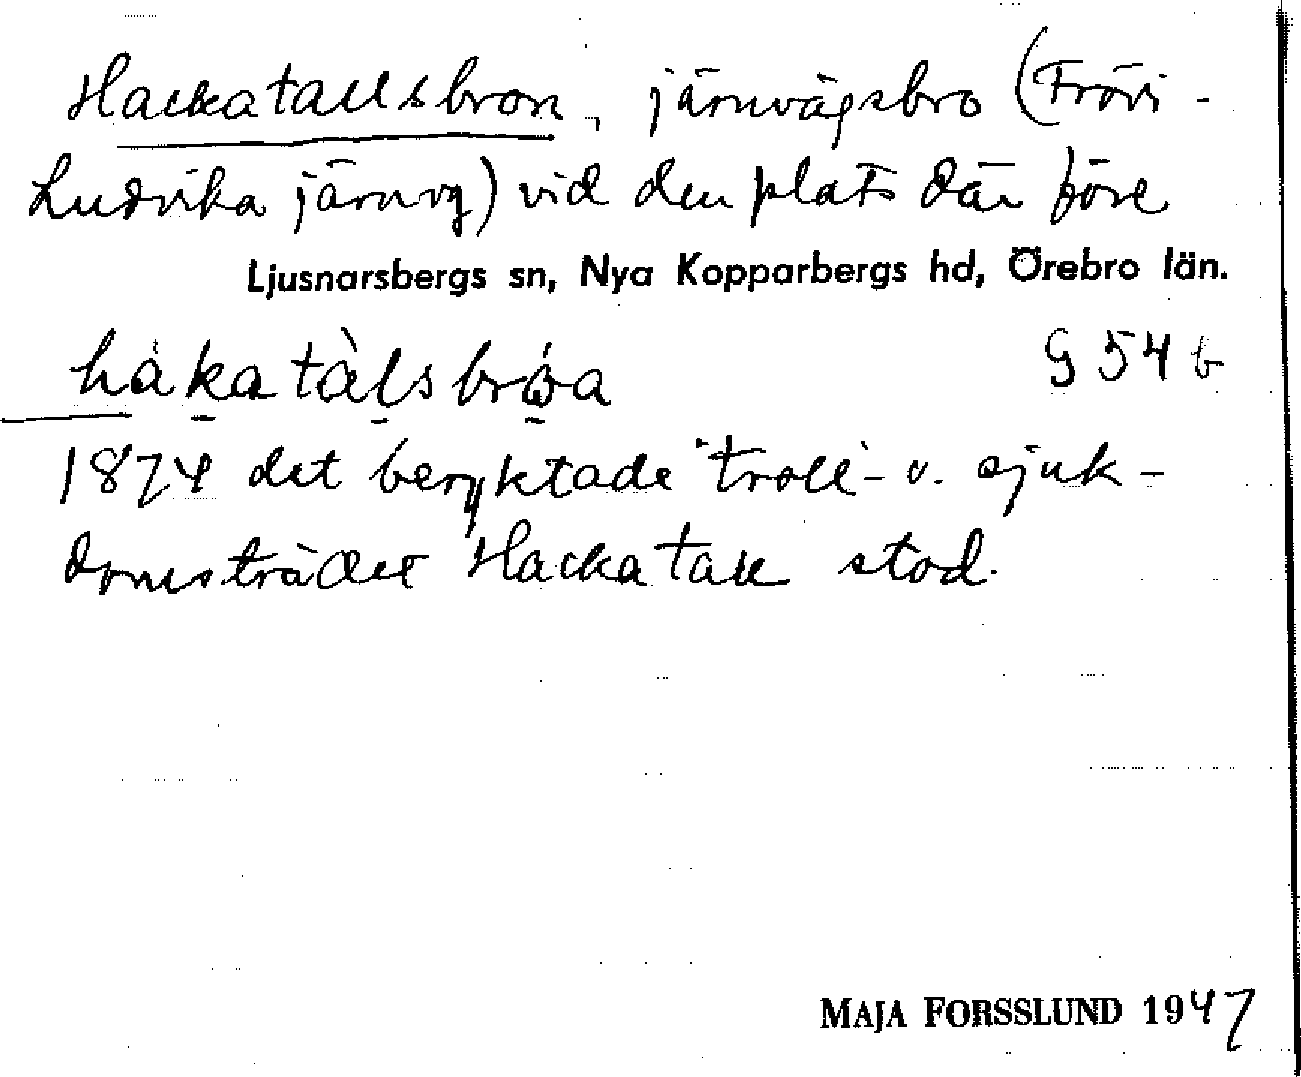 Hackatallsbron, järnvägsbro (Frövi-
Ludvika järnvg) vid den plats där före
Ljusnarsbergs sn, Nya Kopparbergs hd, Örebro län.
hàkatàlsbróa G 54 b
1874 det beryktade "troll"- o. sjuk-
domsträdet Hackatall stod.
MAJA FORSSLUND 1947